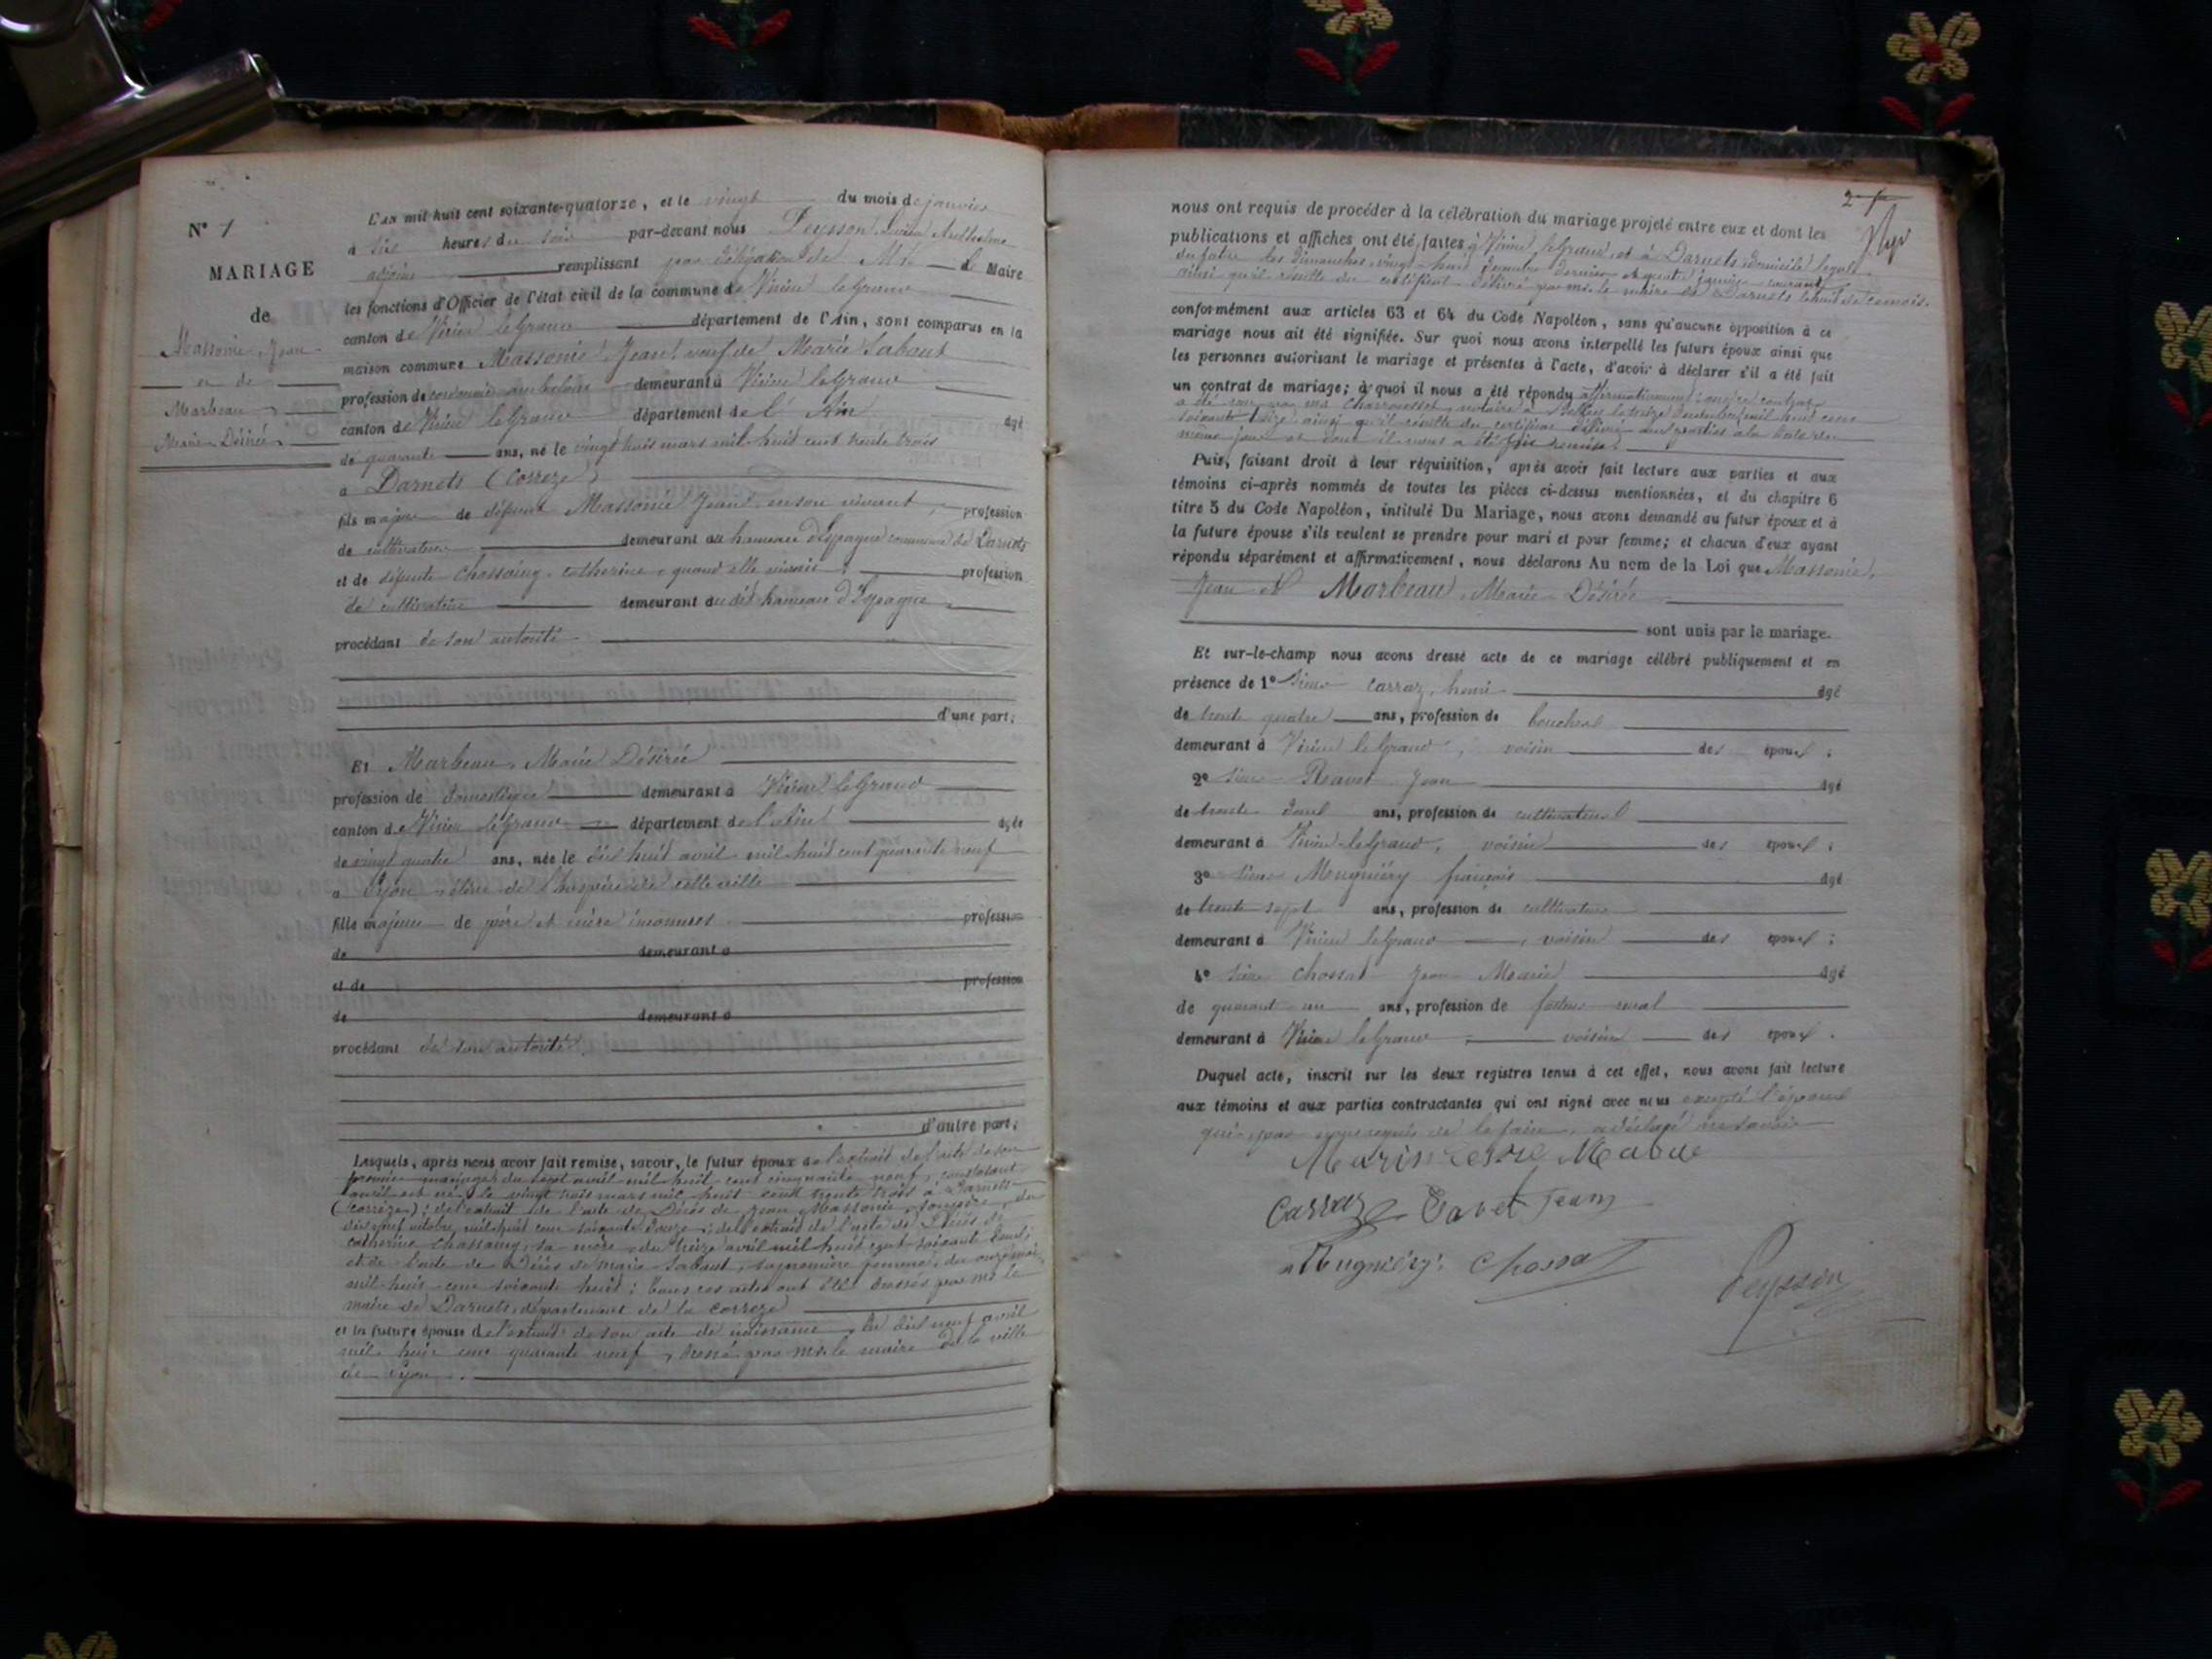 N° 1
MARIAGE
de
Massonie, Jean
et de
Marbeau
Marie Désirée
L'an mil huit cent soixante-quatorze, et le vingt du mois de janvier
à six heures du soir par-devant nous Peysson Anthelme
adjoint remplissant par délégation de Mr le Maire
les fonctions d'Officier de l'état civil de la commune de Virieu le Grand
canton de Virieu le Grand département de l'Ain, sont comparus en la
maison commune Massonie Jean veuf de Marie Sabaut
profession de ambulant demeurant à Virieu le Grand
canton de Virieu le Grand département de l'Ain âgé
de quarante ans, né le vingt trois mars mil huit cent trente trois
à Darnets (Correze)
fils majeur de défunt Massonie Jean en son vivant, profession
de cultivateur demeurant au hameau d'Espagne commune de Darnets
et de défunte Chassaing Catherine, quand elle vivait, profession
de cultivatrice demeurant au dit hameau d'Espagne
procédant de son autorité
d'une part;
Et Marbeau, Marie Désirée
profession de domestique demeurant à Virieu le Grand
canton de Virieu le Grand département de l'Ain âgée
de vingt quatre ans, née le dix huit avril mil huit cent quarante neuf
à Lyon élève de l'hospice de cette ville
fille majeure de père et mère inconnus profession
de demeurant à
et de profession
de demeurant à
procédant de son autorité
d'autre part;
Lesquels, après nous avoir fait remise, savoir, le futur époux de l'extrait de l'acte de son
premier mariage du sept avril mil huit cent cinquante neuf, constatant
qu'il est né le vingt trois mars mil huit cent trente trois à Darnets
(Corrèze); de l'extrait de l'acte de Décès de Jean Massonie, son père, du
dix neuf octobre mil huit cent soixante douze; de l'extrait de l'acte de Décès de
Catherine Chassaing, sa mère, du treize avril mil huit cent soixante
et de l'acte de Décès de Marie Sabaut, sa première femme, du onze mai
mil huit cent soixante huit; tous ces actes ont été dressés par Mr le
maire de Darnets, département de la Correze
et la future épouse de l'extrait de son acte de naissance, du dix neuf avril
mil huit cent quarante neuf, dressé par Mr le maire de la ville
de Lyon.
2
nous ont requis de procéder à la célébration du mariage projeté entre eux et dont les
publications et affiches ont été faites à Virieu le Grand et à Darnets domicile légal
du futur les dimanches vingt-huit décembre dernier et quatre janvier courant
ainsi qu'il résulte du certificat délivré par Mr le maire de Darnets le huit de ce mois.
conformément aux articles 63 et 64 du Code Napoléon, sans qu'aucune opposition à ce
mariage nous ait été signifiée. Sur quoi nous avons interpellé les futurs époux ainsi que
les personnes autorisant le mariage et présentes à l'acte, d'avoir à déclarer s'il a été fait
un contrat de mariage; à quoi il nous a été répondu affirmativement, contrat
a été reçu par me notaire à Belley le treize décembre mil huit cent
soixante treize ainsi qu'il résulte du certificat délivré aux parties à la date du
même jour et dont il nous a été fait remise.
Puis, faisant droit à leur réquisition, après avoir fait lecture aux parties et aux
témoins ci-après nommés de toutes les pièces ci-dessus mentionnées, et du chapitre 6
titre 5 du Code Napoléon, intitulé Du Mariage, nous avons demandé au futur époux et à
la future épouse s'ils veulent se prendre pour mari et pour femme; et chacun d'eux ayant
répondu séparément et affirmativement, nous déclarons Au nom de la Loi que Massonie,
Jean et Marbeau, Marie Désirée
sont unis par le mariage.
Et sur-le-champ nous avons dressé acte de ce mariage célébré publiquement et en
présence de 1° Sieur Carraz, henri âgé
de trente quatre ans, profession de boucher
demeurant à Virieu le Grand, voisin des époux;
2° Sieur Ravet Jean âgé
de trente deux ans, profession de cultivateur
demeurant à Virieu le Grand, voisin des époux;
3° Sieur Mugniéry françois âgé
de trente sept ans, profession de cultivateur
demeurant à Virieu le Grand, voisin des époux;
4° Sieur Chossat Jean Marie âgé
de quarante un ans, profession de facteur rural
demeurant à Virieu le Grand, voisin des époux.
Duquel acte, inscrit sur les deux registres tenus à cet effet, nous avons fait lecture
aux témoins et aux parties contractantes qui ont signé avec nous excepté l'époux
qui, requis de le faire, a déclaré ne savoir
Carraz Ravet Jean
Mugniéry Chossat
Peysson